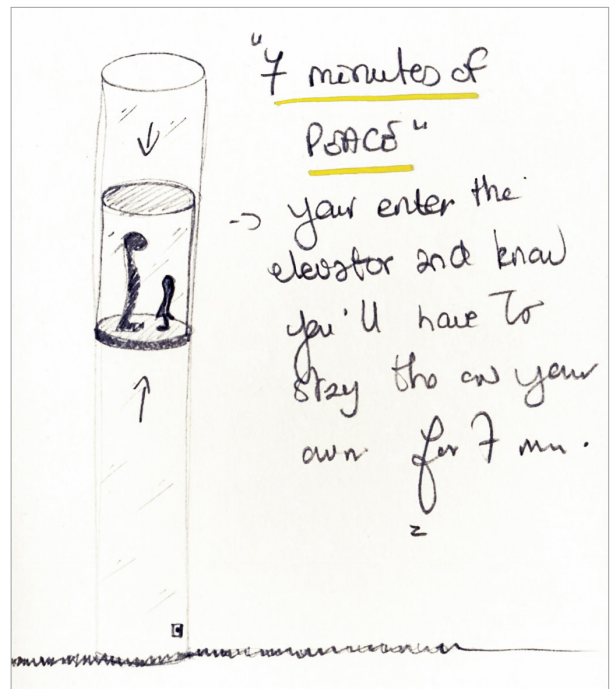 "7 minutes of
PEACE"
→ your enter the
elevator and know
you'll have to
stay on your
own for 7 mn.